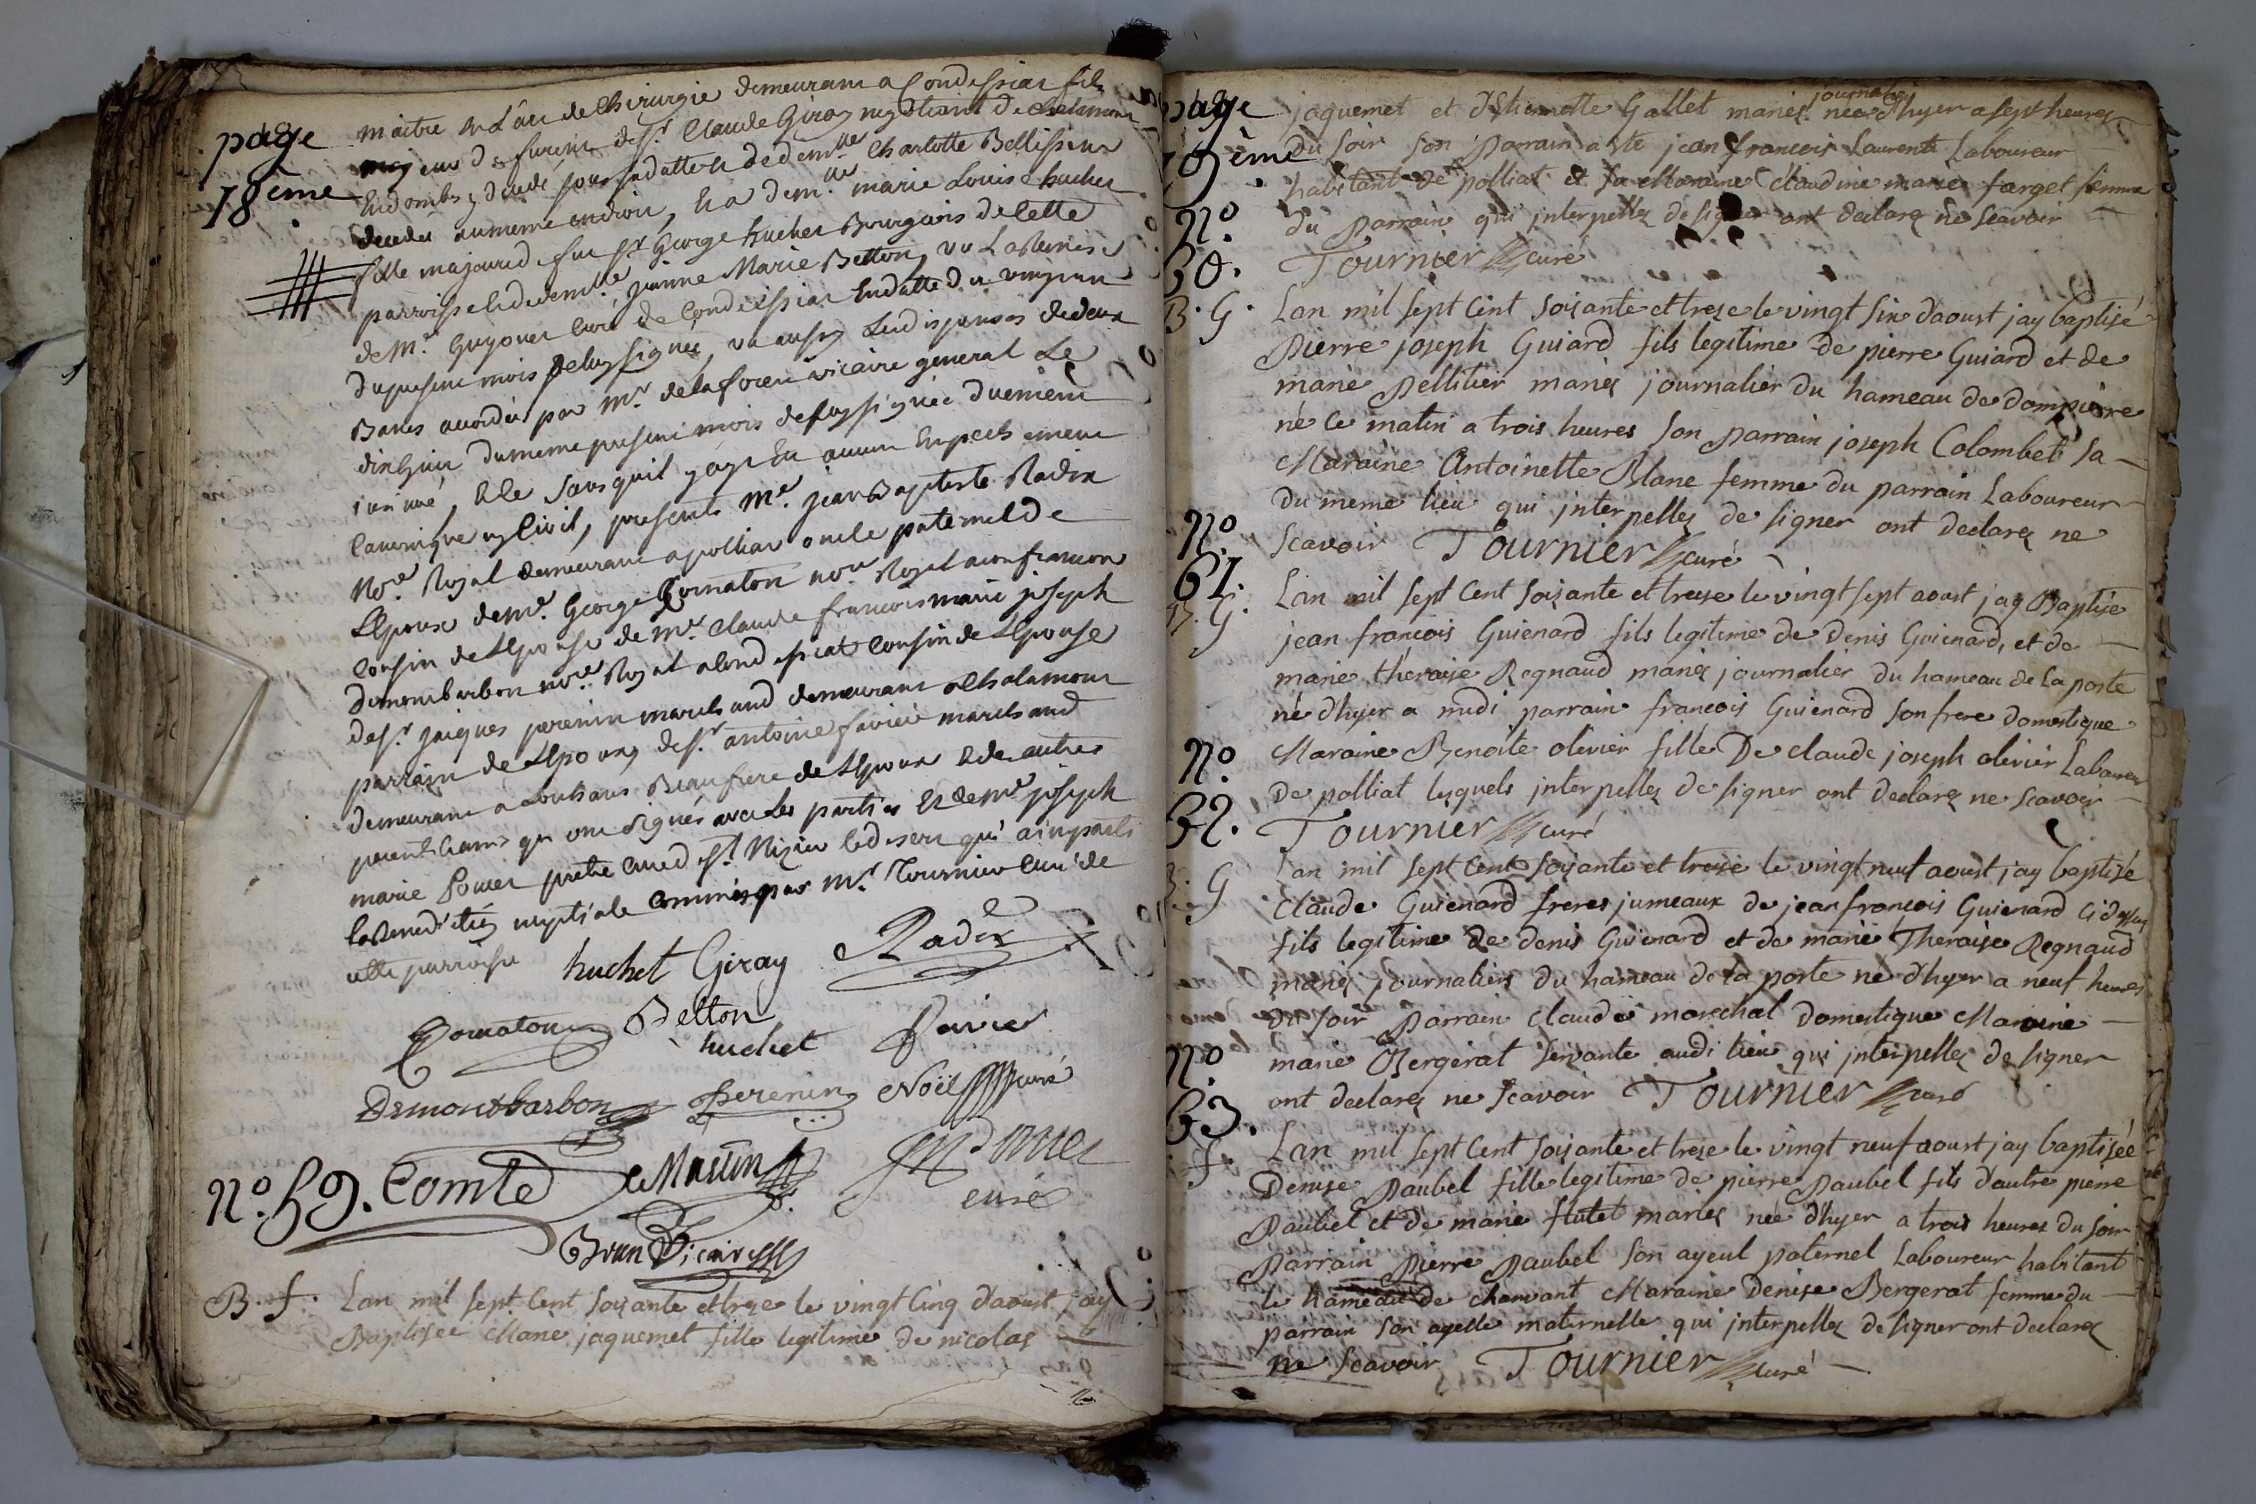 page
18ème
maitre en l'art de chirurgie demeurant a Condessiat fils
majeur de furent de Sr. Claude Giray negotiant de Chalamont
fille majeure de feu Sr. George huchet Bourgeois de Cette
parroisse et de demlle jeanne Marie Betton, vu la Remise
de Mr. Guyonet curé de Condessiat en datte du vingt un
du present mois de luy signée, vu aussy les dispenses de deux
Bans accordée par Mr. de la foret vicaire general le
dix huit du meme present mois de luy signée duement
insinué, et le sans quil y ayt eu aucun Empechement
Canonique ny Civil, presents Me. jean Baptiste Radix
nore. Royal demeurant a polliat oncle paternel de
L'Epoux de Me. George Comaton nore. Royal a confrancon
Cousin de L'Epouse de Me. Claude francois marie joseph
Demontbarbon nore. Royal a Condessiat Cousin de L'Epouse
de Sr. jaques perenin marchand demeurant a Chalamont
parrain de L'Epoux, de Sr. antoine favier marchand
demeurant a Beaufrere de L'Epoux et de autres
parents et amis qui ont signés avec les parties et de Mre joseph
marie pretre curé de St. Nizier le desert qui a imparti
la Benediction nuptiale commis par Mr. Tournier curé de
cette parroisse
huchet Giray Radix
Comaton Betton
huchet favier
Demontbarbon Perenin Noël curé
No. 59. Comte Martin
curé
Brun Vicaire
B. f. Lan mil sept Cent soixante et treze le vingt Cinq daoust jay
Baptisée Marie jaquemet fille legitime de nicolas
page
19ème
journalier
jaquemet et dEtiennette Gallet mariez née d'hyer a sept heures
du soir son Parrain a ete jean francois Laurent Laboureur
habitant de polliat et sa Maraine Claudine marie farget femme
du Parrain qui interpellez de signer ont declarez ne scavoir
Tournier curé
No.
60.
B. G.
Lan mil sept Cent soixante et treze le vingt six daoust jay baptisé
Pierre joseph Guiard fils legitime de pierre Guiard et de
marie Pellitier mariez journalier du hameau de dompierre
né ce matin a trois heures son Parrain joseph Colombet sa
Maraine Antoinette Blanc femme du parrain Laboureur
du meme lieu qui interpellez de signer ont declarez ne
scavoir Tournier curé
No.
61.
B. G.
Lan mil sept Cent soixante et treze le vingt sept aoust jay Baptisé
jean francois Guienard fils legitime de denis Guienard, et de
marie theraise Regnaud mariez journalier du hameau de la porte
né d'hyer a midi parrain francois Guienard son frere domestique
Maraine Benoite olivier fille De claude joseph olivier Laboureur
De polliat lesquels interpellez de signer ont declarez ne scavoir
Tournier curé
No.
62.
B. G
Lan mil sept Cent soixante et treze le vingt neuf aoust jay baptisé
Claude Guienard freres jumeaux de jean francois Guienard ci dessus
fils legitime de denis Guienard et de marie Theraise Regnaud
mariez journaliers du hameau de la porte né d'hyer a neuf heures
du soir Parrain claude marechal domestique Maraine
marie Bergerat servante audi lieu qui interpellez de signer
ont declarez ne scavoir Tournier curé
No.
63.
f.
Lan mil sept Cent soixante et treze le vingt neuf aoust jay baptisée
Denise Paubel fille legitime de pierre Paubel fils dautre pierre
Paubel et de marie flutet mariez née d'hyer a trois heures du soir
Parrain Pierre Paubel son ayeul paternel Laboureur habitant
le hameau de charvant Maraine Denise Bergerat femme du
parrain son ayelle maternelle qui interpellez de signer ont declarez
ne scavoir Tournier curé